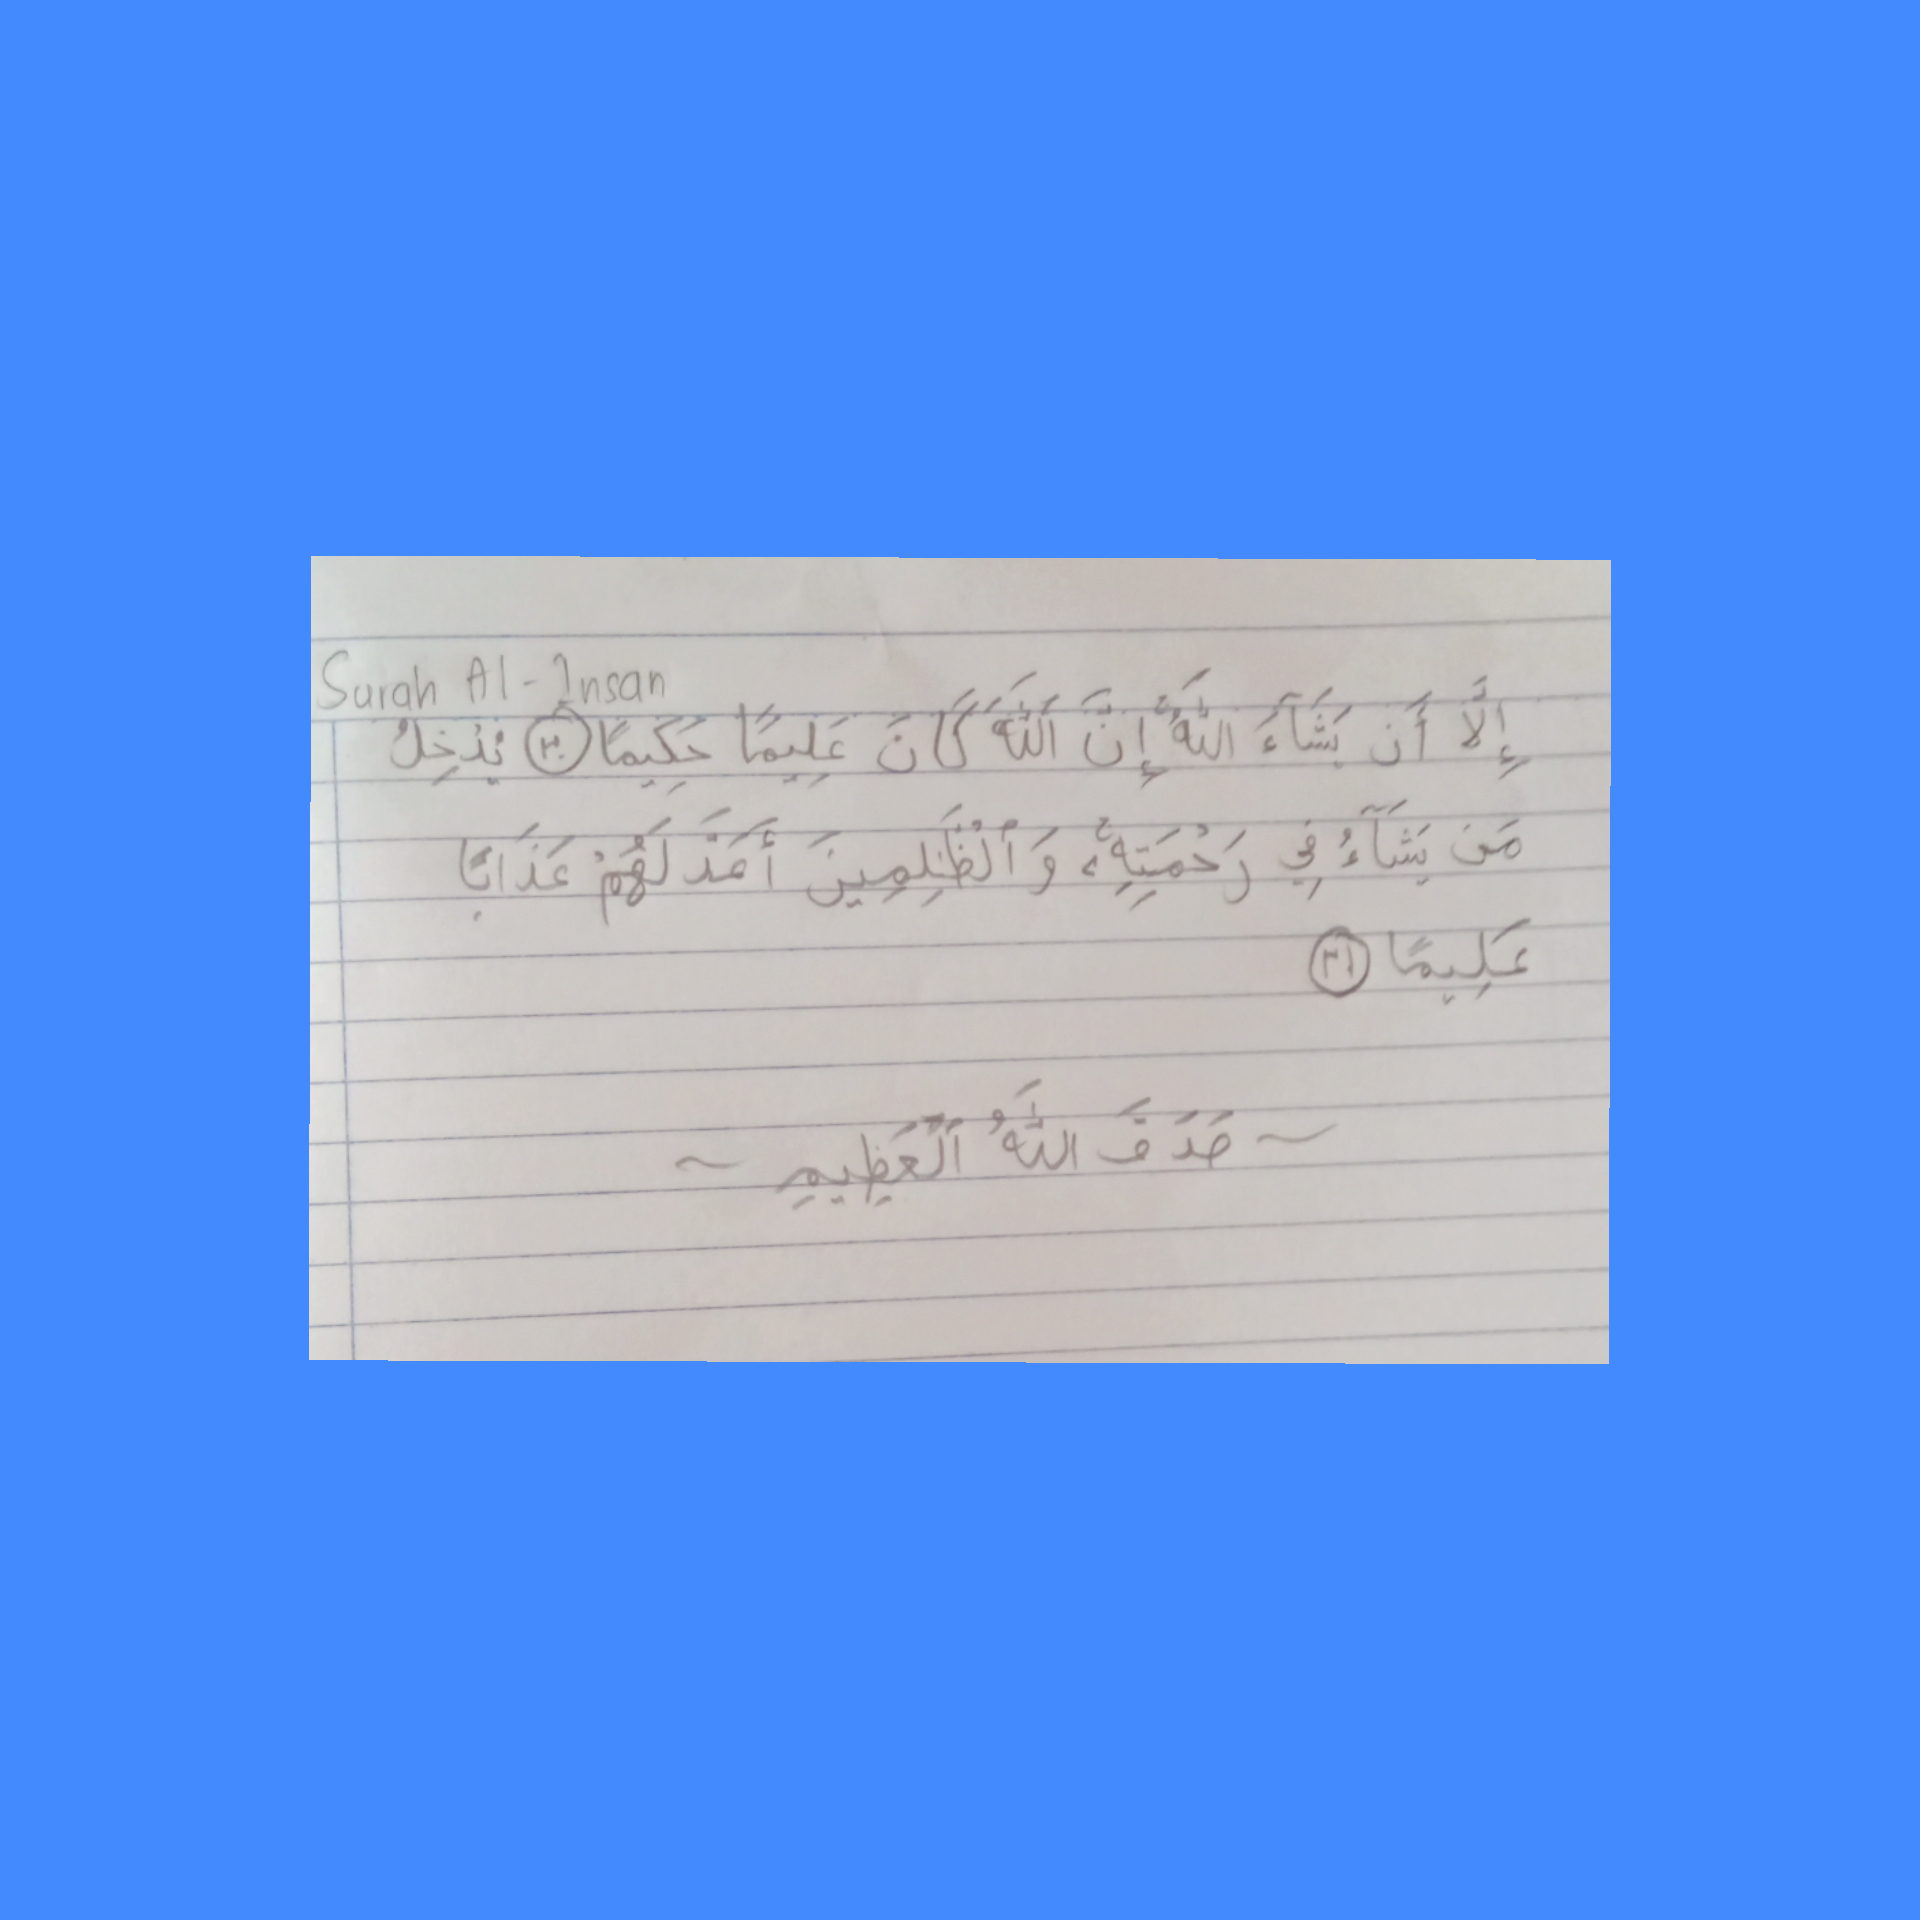 Surah Al-Insan
إِلَّا أَن يَشَآءَ اللَّهُ ۚ إِنَّ اللَّهَ كَانَ عَلِيمًا حَكِيمًا ٣٠ يُدْخِلُ
مَن يَشَآءُ فِي رَحْمَتِهِۦ ۚ وَٱلْظَّٰلِمِينَ أَعَدَّ لَهُمْ عَذَابًا
عَلِيمًا ٣١
~ صَدَقَ اللَّهُ الْعَظِيمِ ~